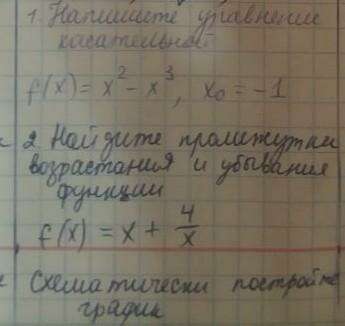 1. Напишите уравнение
касательной
f(x) = x² - x³, x₀ = -1
2. Найдите промежутки
возрастания и убывания
функции
f(x) = x + 4/x
Схематически постройте
график